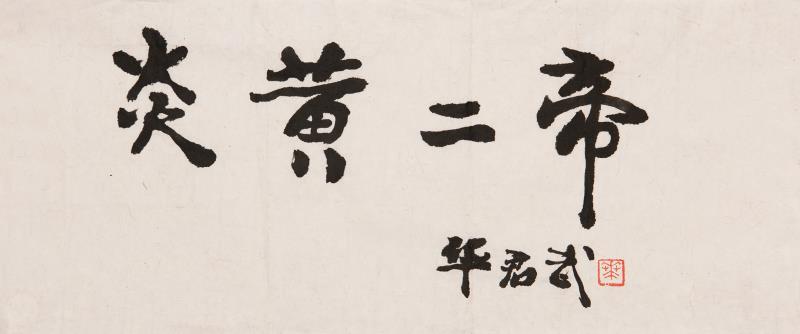 炎黄二帝
华君武